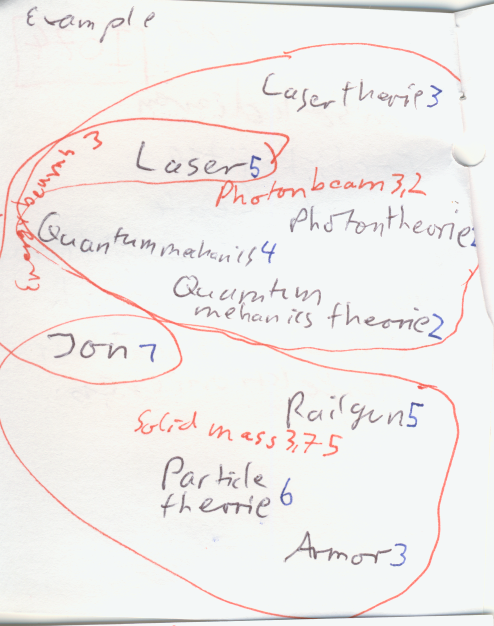 Example
Lasertheorie 3
Laser 5
Photonbeam 3,2
Energybeams 3
Photontheorie
Quantummechanics 4
Quantum
mehanics theorie 2
Jon 7
Railgun 5
Solid mass 3,75
Particle
theorie 6
Armor 3